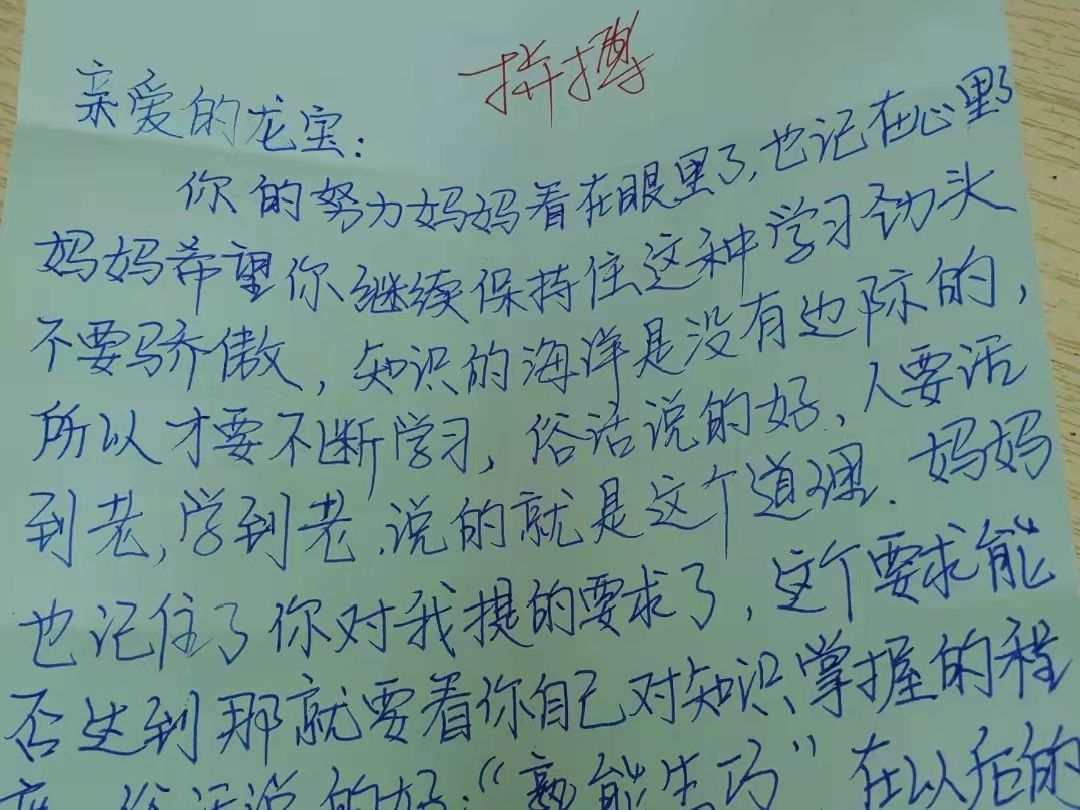 拼搏
亲爱的龙宝：
你的努力妈妈看在眼里了，也记在心里了
妈妈希望你继续保持住这种学习劲头
不要骄傲，知识的海洋是没有边际的，
所以才要不断学习，俗话说的好，人要活
到老，学到老，说的就是这个道理．妈妈
也记住了你对我提的要求了，这个要求能
否达到那就要看你自己对知识掌握的程
度，俗话说的好：“熟能生巧”在以后的